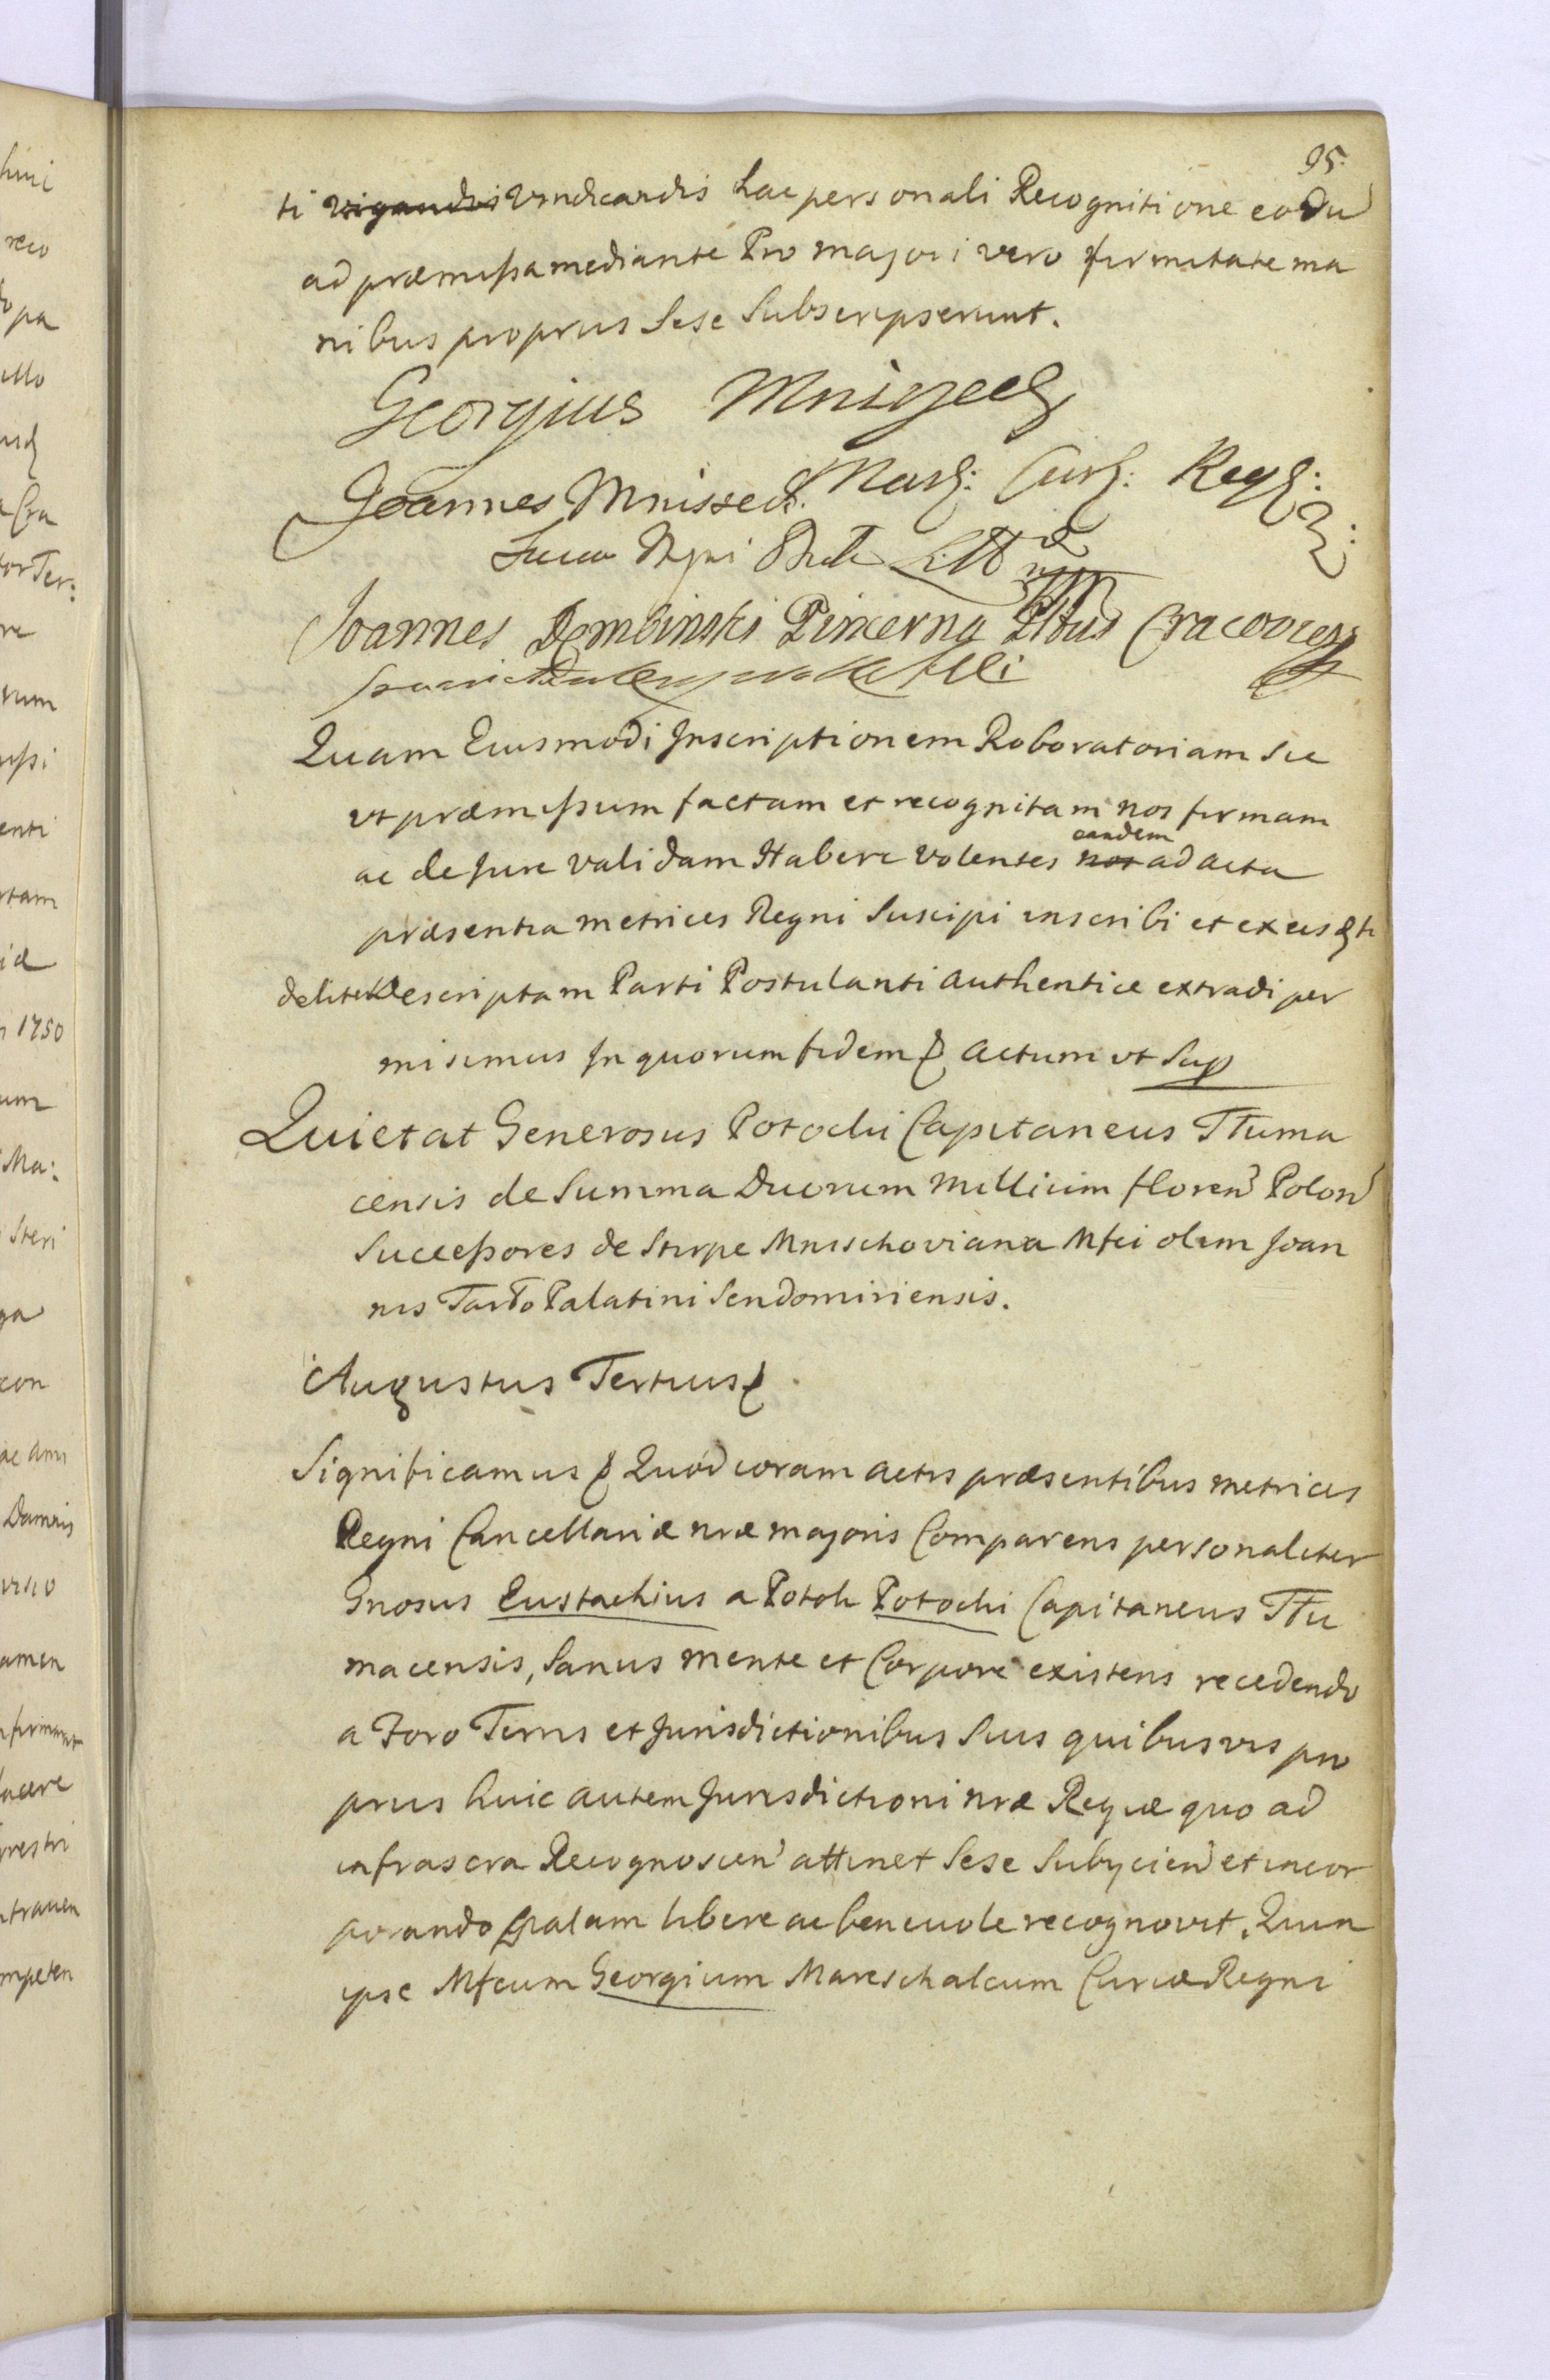 95.
ti vigandis Vindicandis hac personali Recognitione eoru
ad præmissa mediante Pro majori vero firmitate ma
nibus proprius sese subscripserunt.
Georgius Mniszech
Marsz: Curiæ: Regni:
Joannes Mniszech
Joannes Dembinski Pincerna Pltus Cracovien
Quam Eiusmodi Inscriptionem Roboratoriam sic
ut præmissum factam et recognitam nos firmam
ac de Jure validam Habere volentes nos eandem ad acta
præsentia metrices Regni Suscipi inscribi et ex eis
descriptam Parti Postulanti authentice extradi per
misimus In quorum fidem & Actum ut Sup
Quietat Generosus Potocki Capitaneus Tłuma
censis de Summa Duorum millium floren Polon
Successores de Stirpe Mnischoviana Mfci olim Joan
nis Tarło Palatini Sendomiriensis.
Augustus Tertius &
Significamus & Quod coram actis præsentibus metrices
Regni Cancellariæ nræ majoris Comparens personaliter
Gnosus Eustachius a Potok Potocki Capitaneus Tłu
macensis, Sanus mente et Corpore existens recedendo
a Foro Terris et Jurisdictionibus Suis quibusvis pro
prius huic autem Jurisdictioni nræ Regiæ quo ad
infrascra Recognoscen attinet Sese Subycien et incor
porando palam libere ac benevole recognovit, Quia
ipse Mfcum Georgium Mareschalcum Curiæ Regni